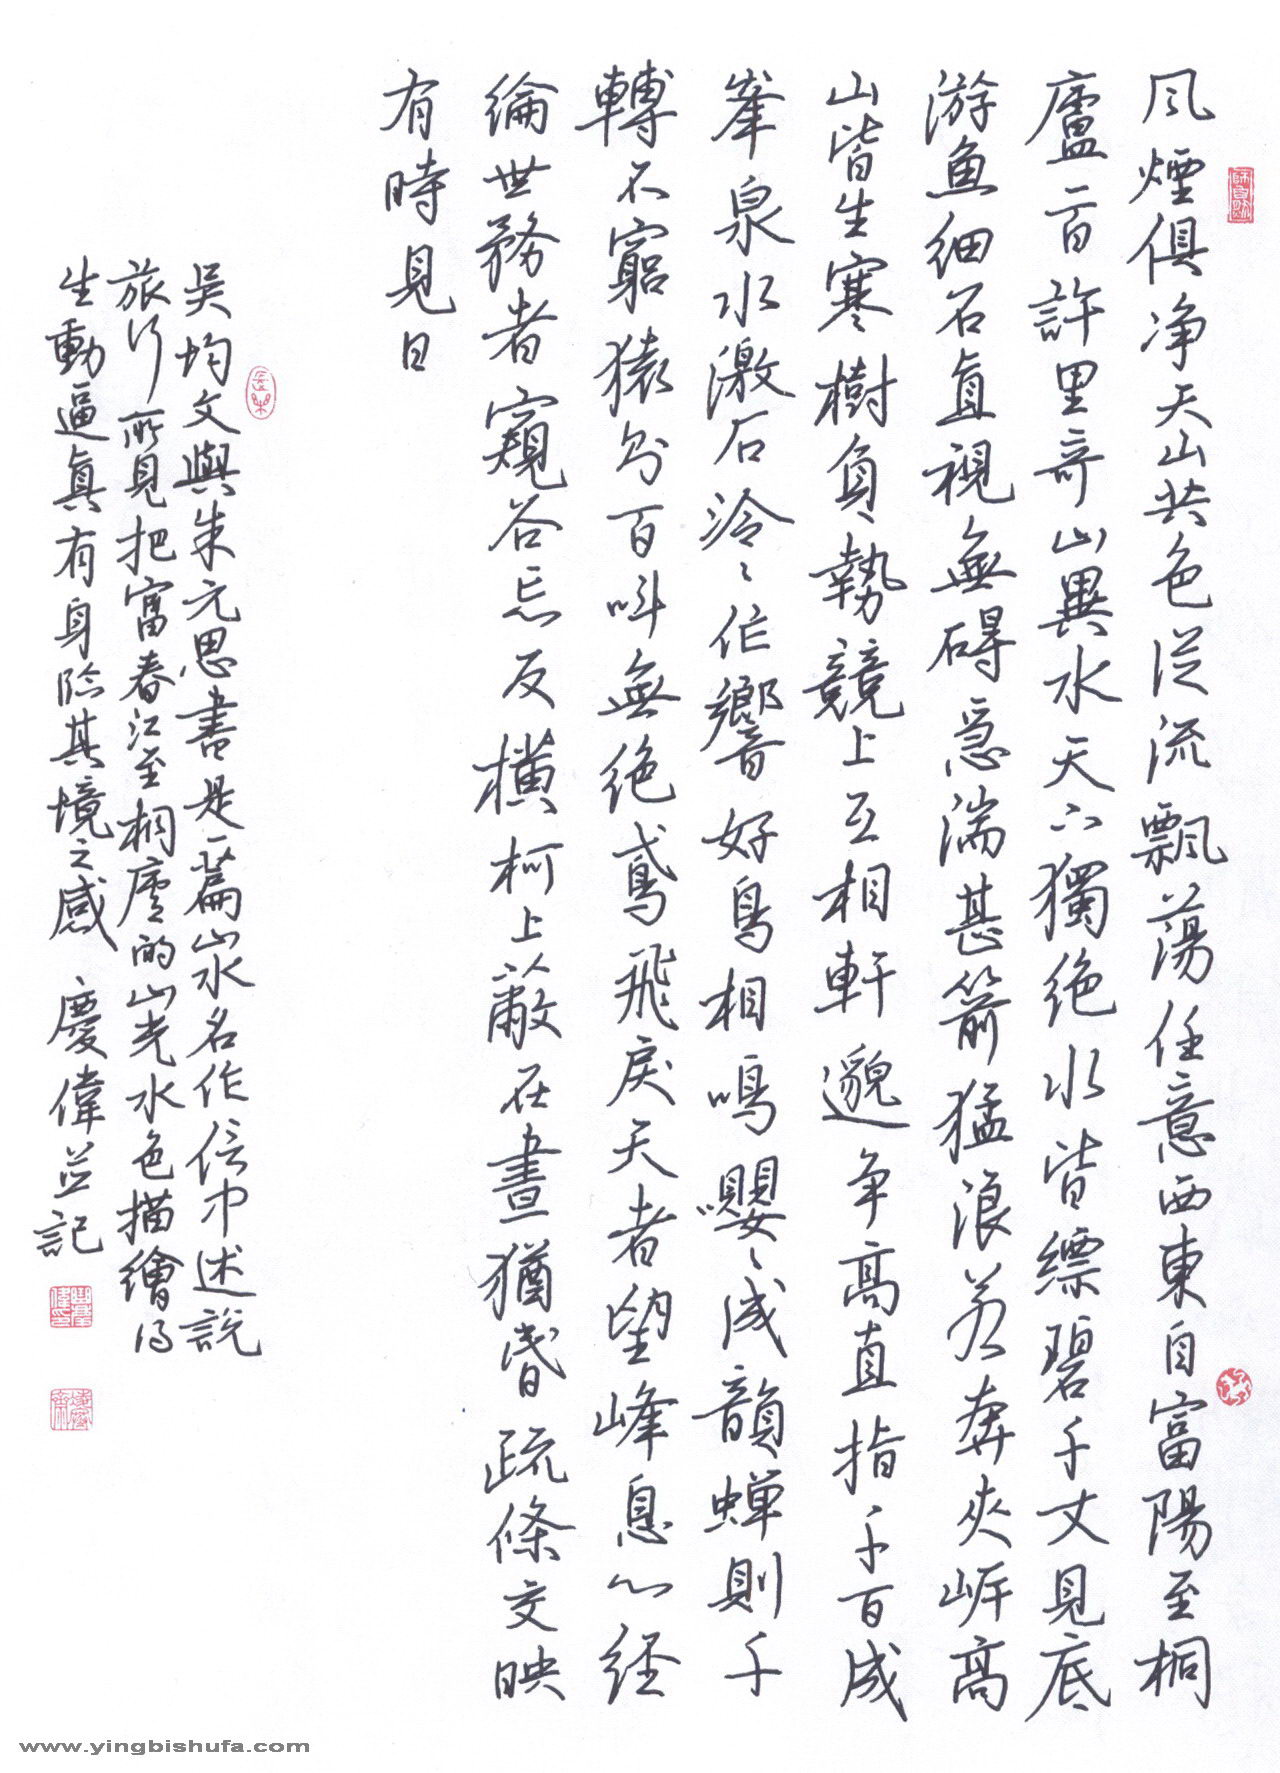 風煙俱净天山共色從流飄蕩任意西東自富陽至桐
廬一百許里奇山異水天下獨絶水皆縹碧千丈見底
游魚細石直視無碍急湍甚箭猛浪若奔夾岸高
山皆生寒樹負勢競上互相軒邈争高直指千百成
峯泉水激石泠〻作響好鳥相鳴嚶〻成韻蝉則千
轉不窮猿則百叫無絶鳶飛戾天者望峰息心經
綸世務者窺谷忘反横柯上蔽在晝猶昏疏條交映
有時見日
吴均文與朱元思書是一篇山水名作信中述説
旅行所見把富春江至桐廬的山光水色描繪得
生動逼真有身臨其境之感 慶偉並記
www.yingbishufa.com